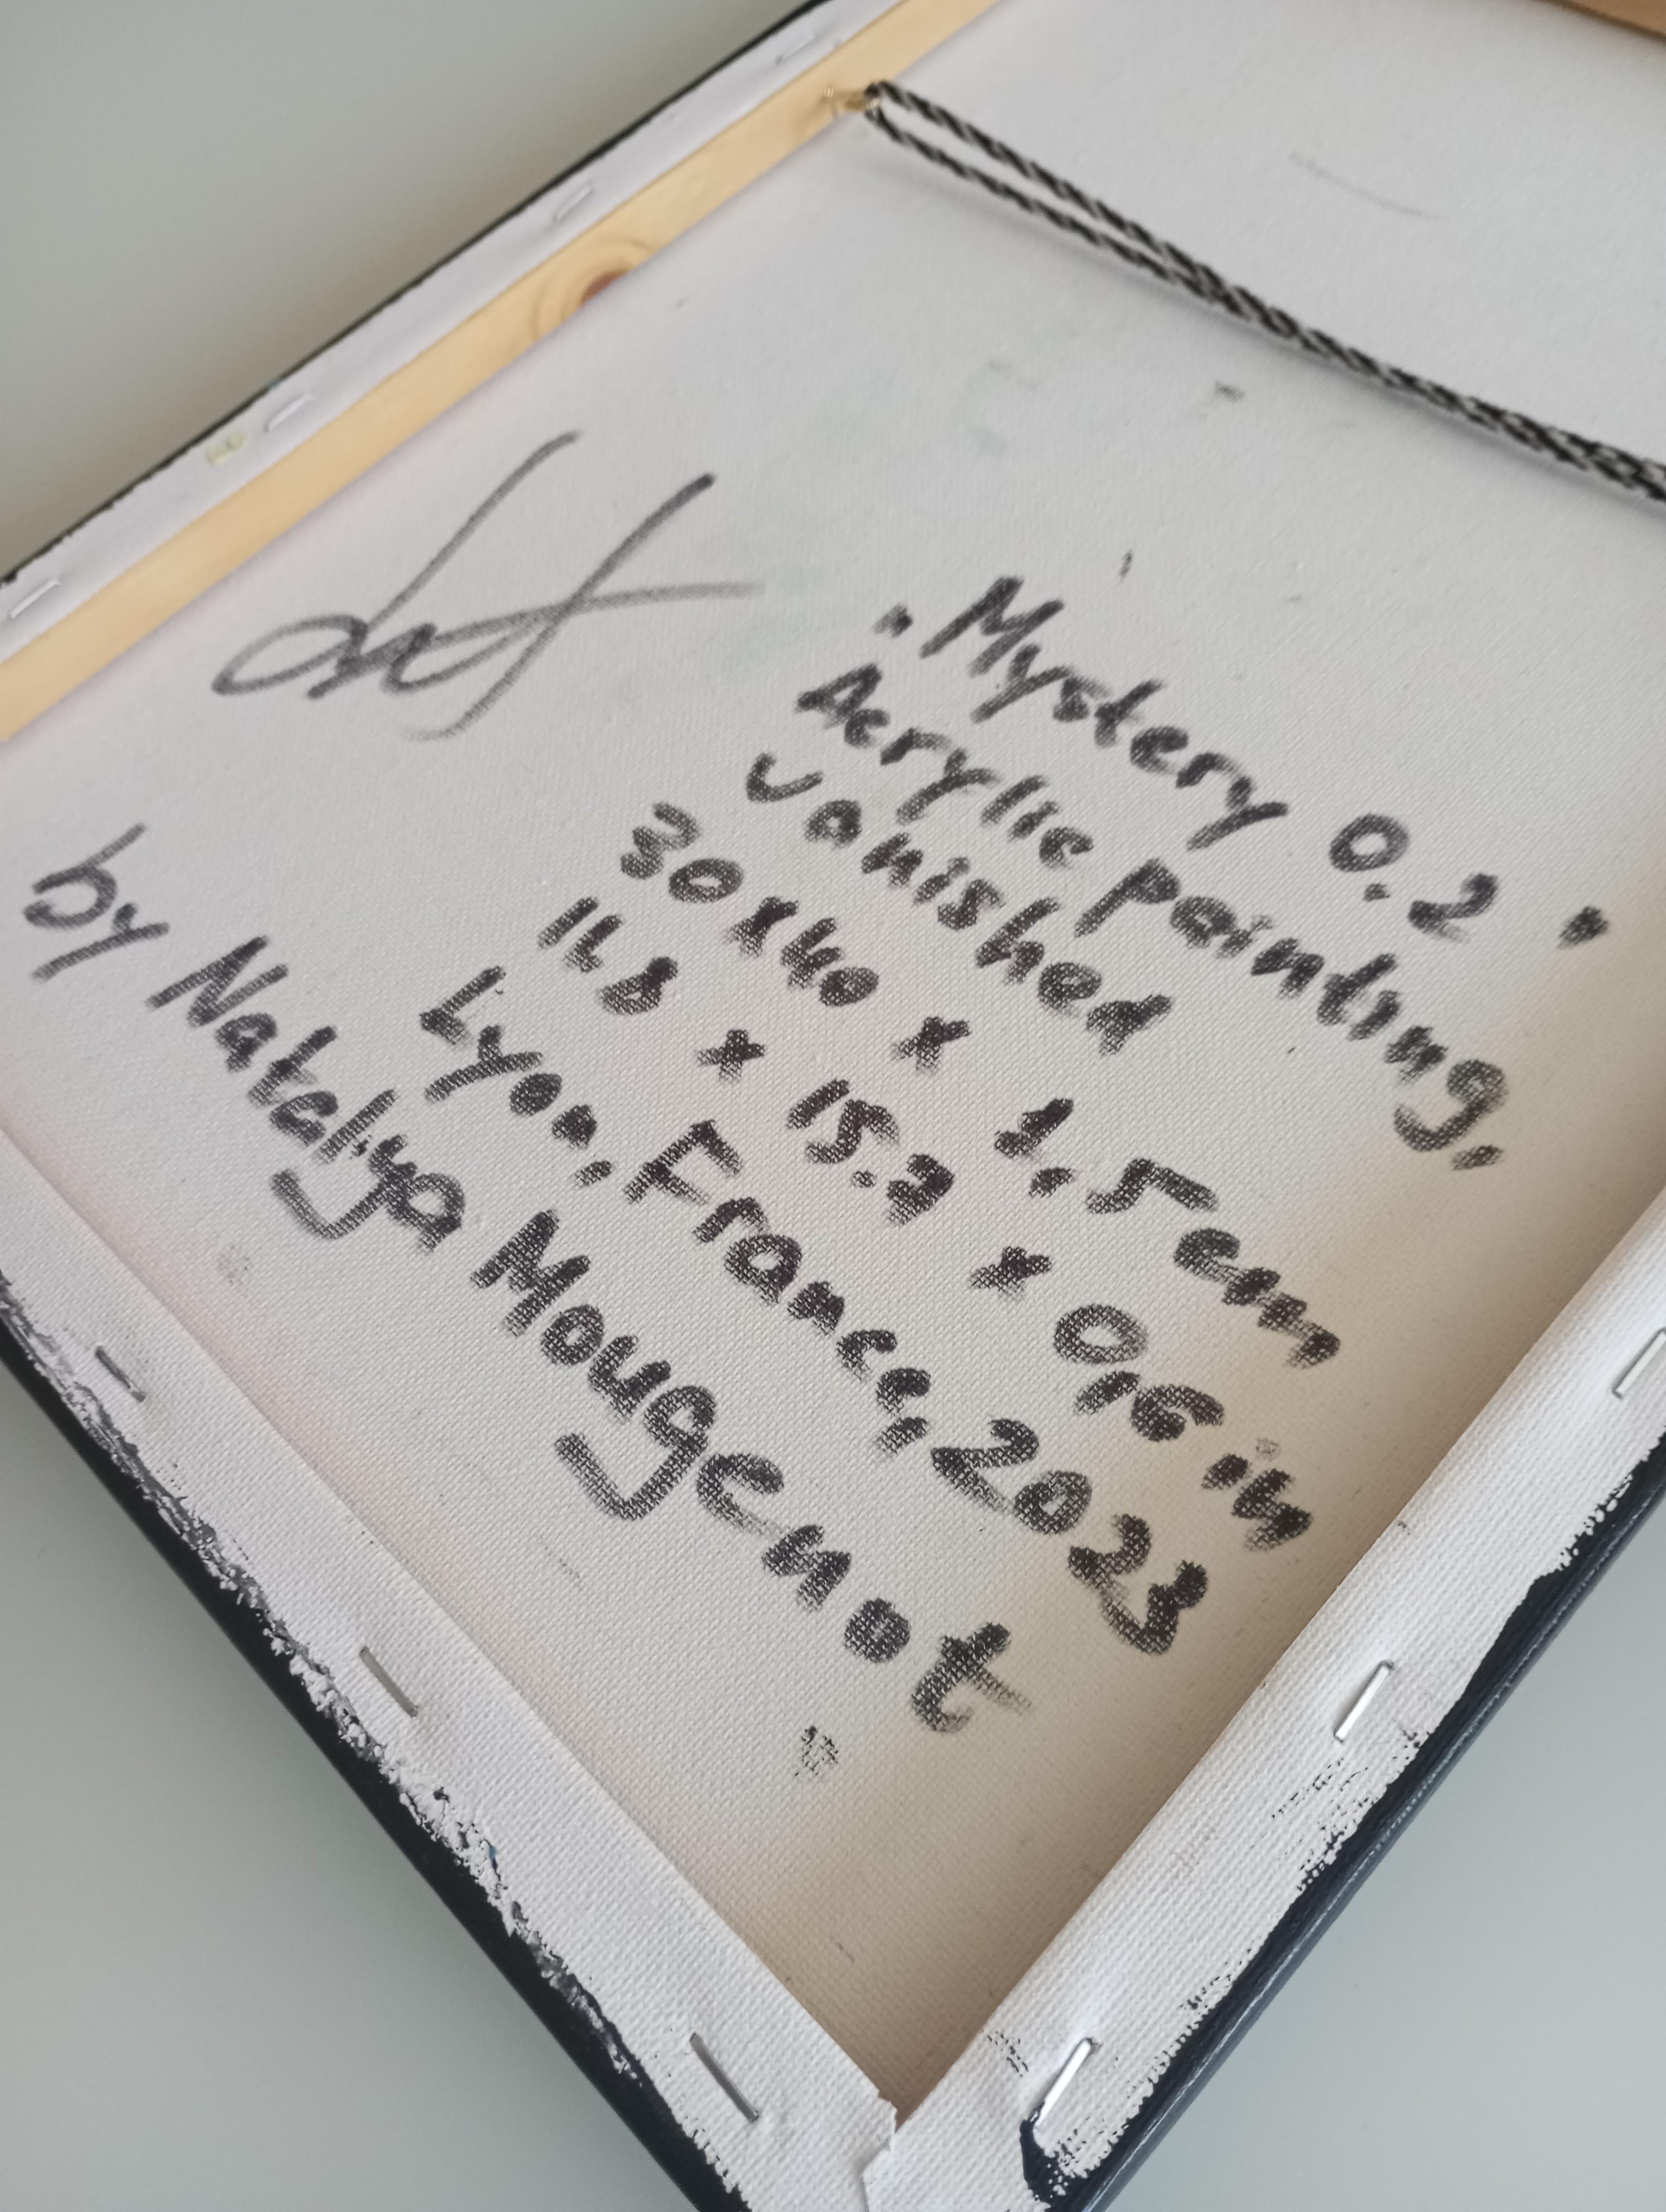 "Mystery 0.2"
Acrylic painting,
vanished
30x40 x 1,5cm
11.8 x 15.7 x 0,6 in
Lyon, France, 2023
by Natalya Mougenot